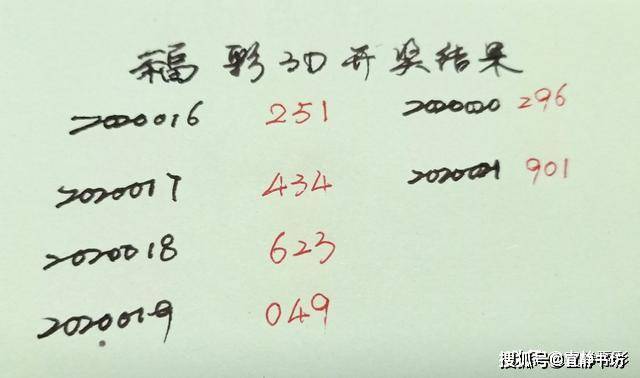 福彩3D开奖结果
2020016 251
2020017 434
2020018 623
2020019 049
2020020 296
2020021 901
搜狐号@宜静书坊